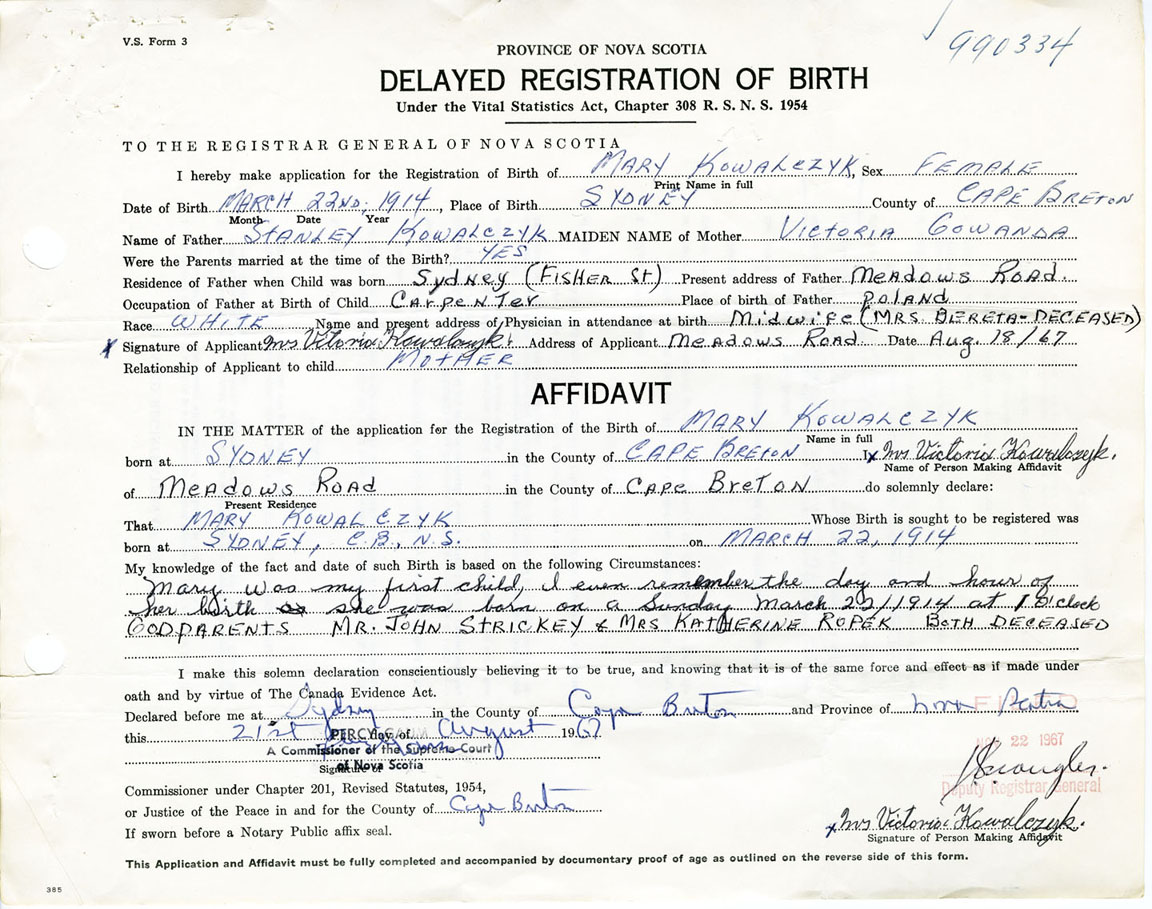 V.S. Form 3
990334
PROVINCE OF NOVA SCOTIA
DELAYED REGISTRATION OF BIRTH
Under the Vital Statistics Act, Chapter 308 R. S. N. S. 1954
TO THE REGISTRAR GENERAL OF NOVA SCOTIA
I hereby make application for the Registration of Birth of MARY KOWALCZYK, Sex FEMALE
Print Name in full
Date of Birth MARCH 22ND, 1914, Place of Birth SYDNEY County of CAPE BRETON
Month Date Year
Name of Father STANLEY KOWALCZYK MAIDEN NAME of Mother VICTORIA GOWANDA
Were the Parents married at the time of the Birth? YES
Residence of Father when Child was born Sydney (FISHER St) Present address of Father Meadows Road.
Occupation of Father at Birth of Child Carpenter Place of birth of Father Poland
Race WHITE Name and present address of Physician in attendance at birth Midwife (MRS. BERETA-DECEASED)
x Signature of Applicant Mrs Vitoria Kowalczyk. Address of Applicant Meadows Road Date Aug. 18/67
Relationship of Applicant to child MOTHER
AFFIDAVIT
IN THE MATTER of the application for the Registration of the Birth of MARY KOWALCZYK
Name in full
born at SYDNEY in the County of CAPE BRETON I, x Mrs Victoria Kowalczyk.
Name of Person Making Affidavit
of Meadows Road in the County of Cape Breton do solemnly declare:
Present Residence
That MARY KOWALCZYK Whose Birth is sought to be registered was
born at SYDNEY, C.B., N.S. on MARCH 22, 1914
My knowledge of the fact and date of such Birth is based on the following Circumstances:
Mary was my first child, I even remember the day and hour of
her birth she was born on a Sunday March 22/1914 at 1 o'clock
GODPARENTS MR. JOHN STRICKEY & MRS KATHERINE ROPEK BOTH DECEASED
I make this solemn declaration conscientiously believing it to be true, and knowing that it is of the same force and effect as if made under
oath and by virtue of The Canada Evidence Act.
Declared before me at Sydney in the County of Cape Breton and Province of Nova Scotia
this 21st day of August 1967
PERCY
A Commissioner of the Supreme Court
of Nova Scotia
Signature of
22 1967
Deputy Registrar General
Commissioner under Chapter 201, Revised Statutes, 1954,
or Justice of the Peace in and for the County of Cape Breton
If sworn before a Notary Public affix seal.
x Mrs Victoria Kowalczyk.
Signature of Person Making Affidavit
This Application and Affidavit must be fully completed and accompanied by documentary proof of age as outlined on the reverse side of this form.
385